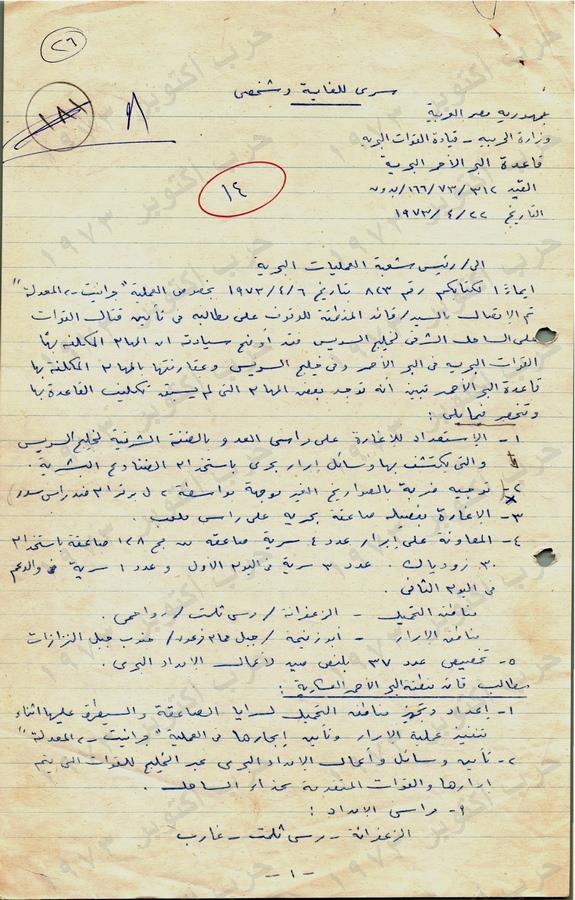 ٢٦
١٨١
سرى للغاية وشخصى
جمهورية مصر العربية
وزارة الحربية - قيادة القوات البحرية
قاعدة البحر الأحمر البحرية
القيد ٣١٢/٧٣/١٦٦/بدون
التاريخ ٢٢/٤/١٩٧٣
١٤
الى/ رئيس شعبة العمليات البحرية
لكتابكم رقم ٨٢٣ بتاريخ ٦/٤/١٩٧٣ بخصوص العملية "جرانيت - ٢ المعدلة"
تم الاتصال بالسيد/ قائد المنطقة للوقوف على مطالبه فى تأمين قتال القوات
على الساحل الشرقى لخليج السويس فقد أوضح سيادته ان المهام المكلفه بها
القوات البحرية فى البحر الأحمر وفى خليج السويس وبمقارنتها بالمهام المكلفة بها
قاعدة البحر الأحمر تبين أنه توجد بعض المهام التى لم يسبق تكليف القاعدة بها
وتنحصر فيما يلى :
١- الاستعداد للاغارة على مراسى العدو بالضفة الشرقية لخليج السويس
والتى يكتشف بها وسائل إبرار بحرى باستخدام الضفادع البشرية .
٢- توجيه ضربة بالصواريخ الغير موجهة بواسطة ٢ ل ضد راس سدر
٣- الإغارة بفصيلة صاعقة بحرية على راس ملعب
٤- المعاونة على إبرار عدد ٤ سرية صاعقه من مج ١٢٨ صاعقة باستخدام
٣٠ زودياك . عدد ٣ سرية فى اليوم الأول وعدد ١ سرية
فى اليوم الثانى .
مناطق التحميل - الزعفرانة / رأس ثلمت /
مناطق الإبرار - أبوزنيمة / جبل حمام فرعون / جنوب جبل
٥- تخصيص عدد ٣٧ بلنص صيد لأعمال الامداد البحرى .
مطالب قائد منطقة البحر الأحمر العسكرية :
١- إعداد وتجهيز مناطق التحميل لسرايا الصاعقة والسيطرة عليها أثناء
تنفيذ عملية الإبرار وتأمين إبحارها فى العملية "جرانيت - ٢ المعدلة"
٢- تأمين وسائل وأعمال الامداد البحرى عبر الخليج للقوات التى يتم
إبرارها والقوات المتقدمة بحذاء الساحل .
٩- مراسى الامداد :
الزعفرانة - رأس ثلمت - غارب
- ١ -
حرب اكتوبر ١٩٧٣